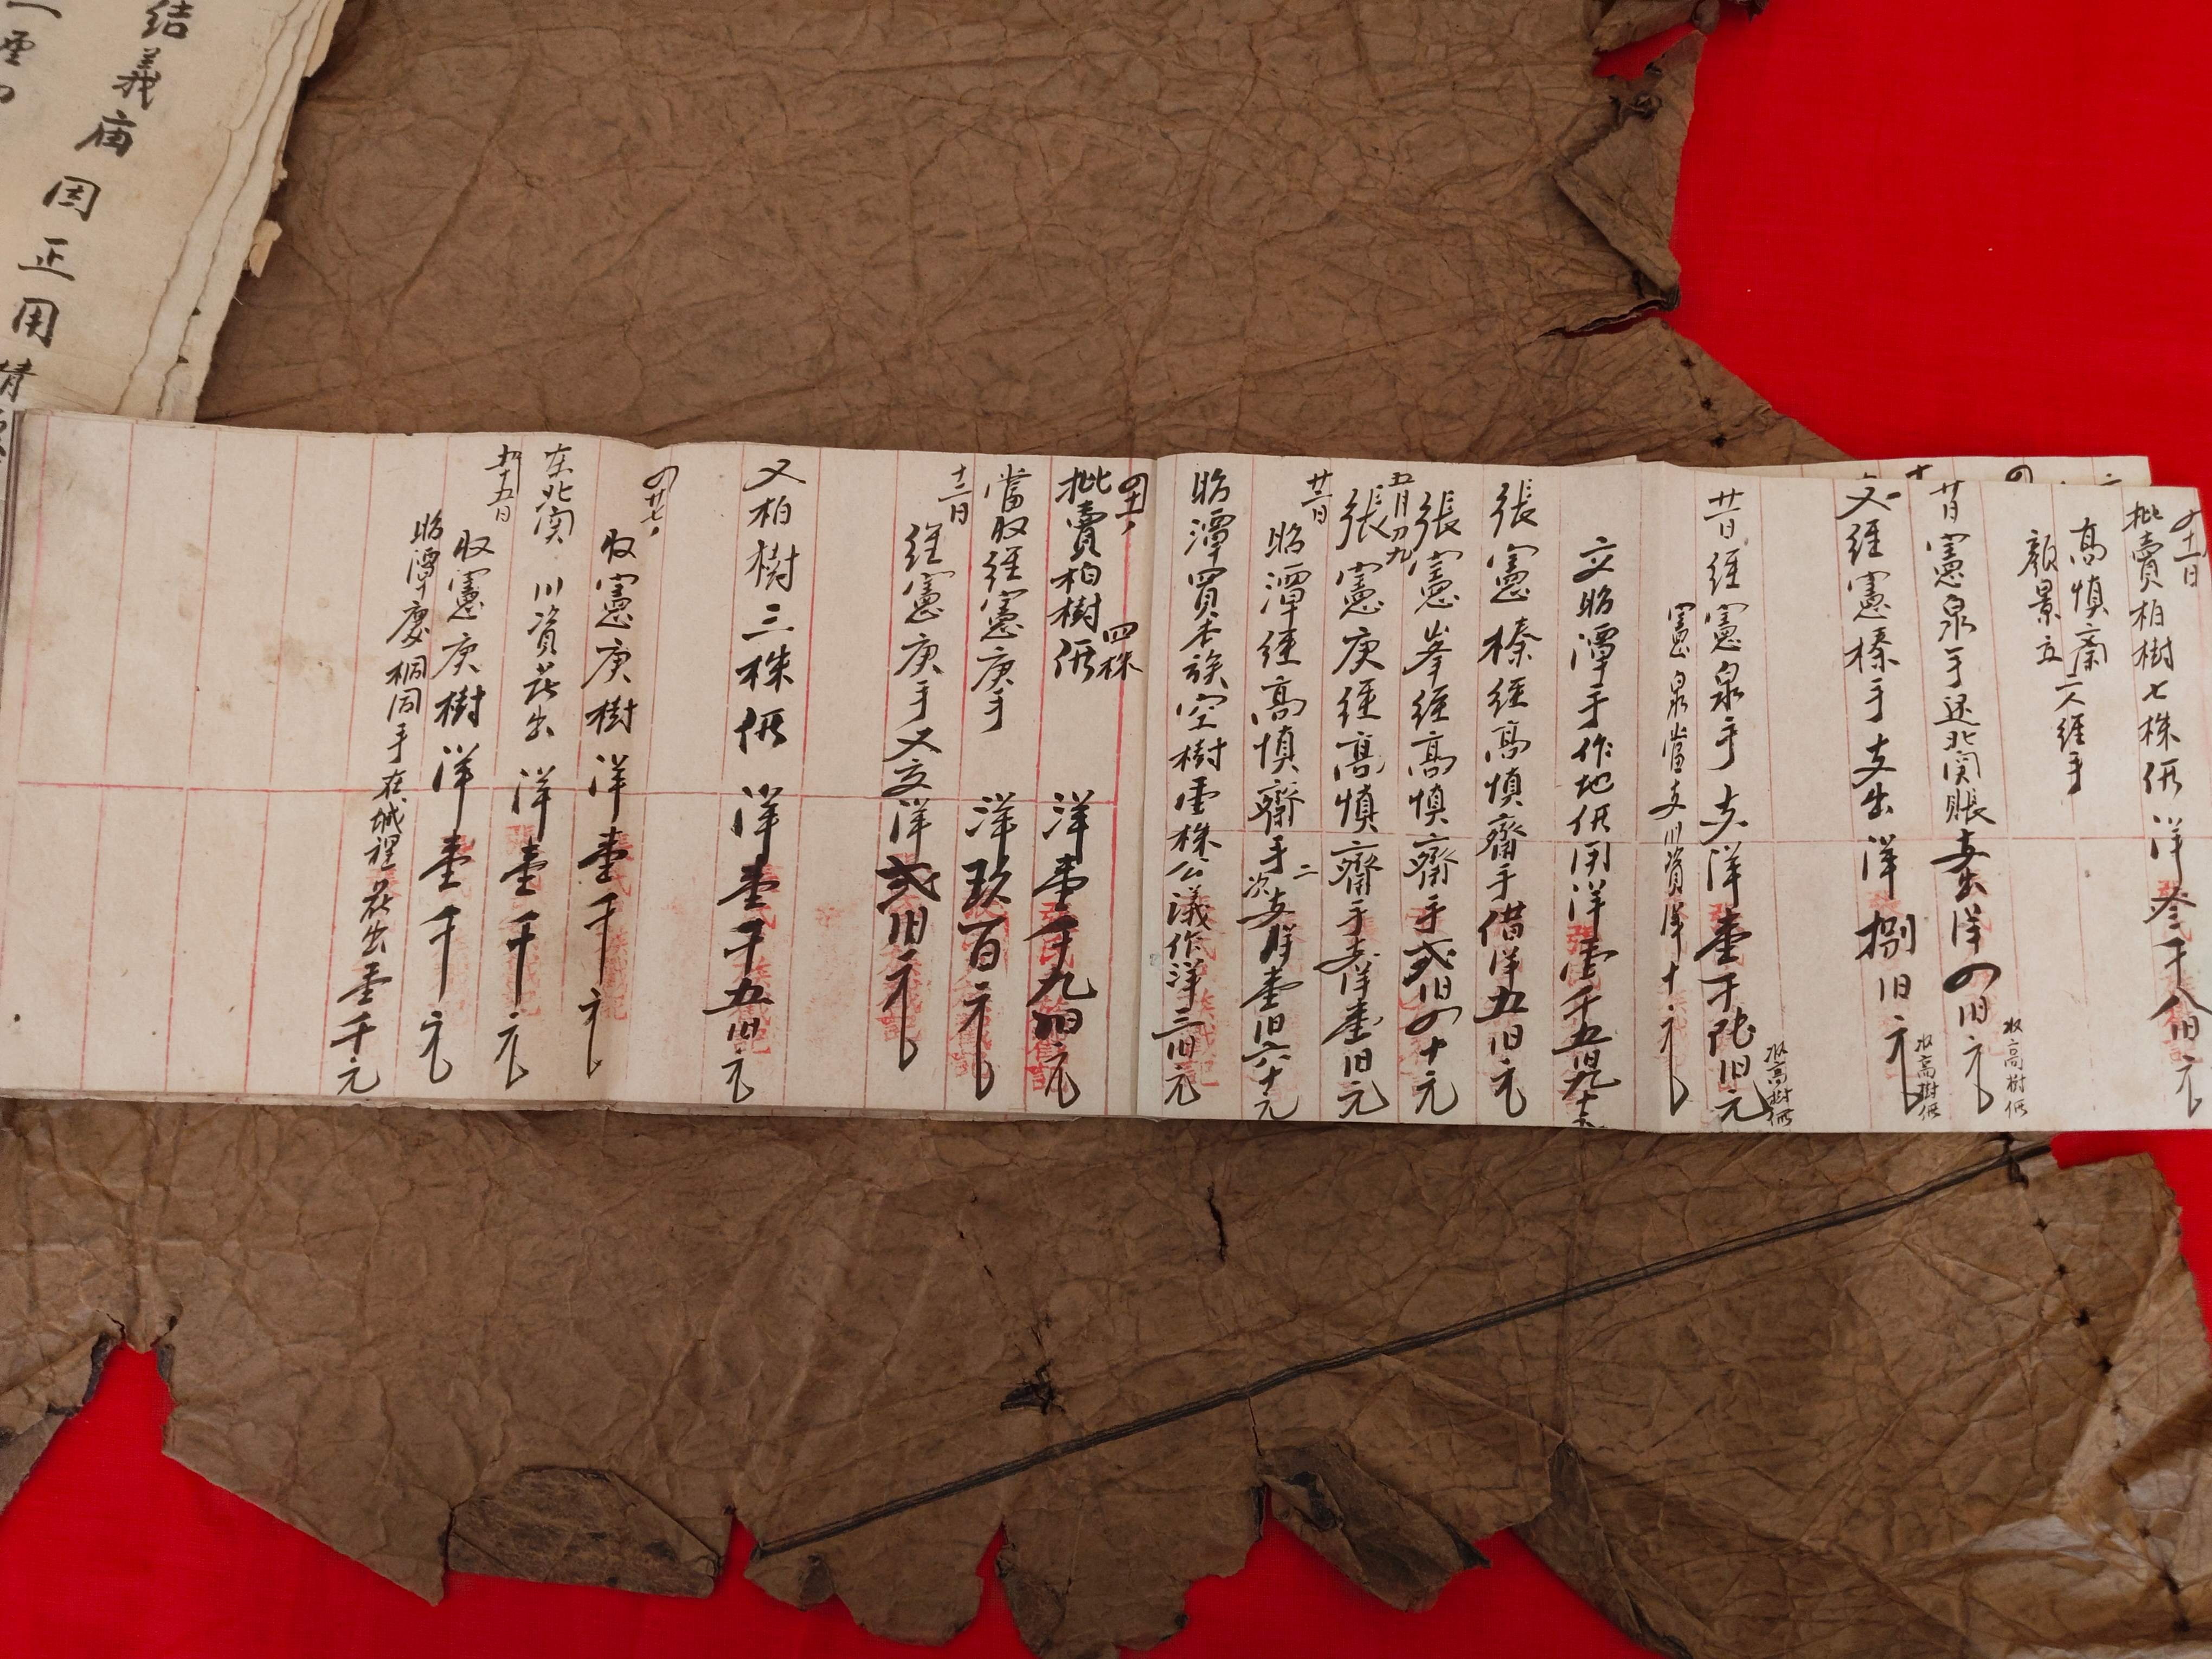 四十一日
批賣柏樹七株価洋叁千八百元
高慎斎
顏景五
二人經手
廿日憲泉手还北関賬支出洋四百元
收高樹価
又經憲榛手支出洋捌百元
收高樹価
廿日經憲泉手支洋壹千陆百元
收高樹価
憲泉當支川資洋十元
交昭潭手作地価用洋壹千五百九十元
張憲榛經高慎齋手借洋五百元
張憲峯經高慎齋手弍百四十元
五月初九
張憲庚經高慎齋手支洋壹百元
廿三日
昭潭經高慎齋手二次支洋壹百六十元
昭潭買本族空樹壹株公議作洋三百元
四十一
四株
批賣柏樹価 洋壹千九百元
當收經憲庚手 洋玖百元
十二日
經憲庚手又交洋弍百元
又柏樹三株価 洋壹千五百元
四廿七
收憲庚樹洋壹千元
在北関 川資花出 洋壹千元
五十五日
收憲庚樹洋壹千元
昭潭慶桐同手在城裡花出壹千元
結義庙因正用